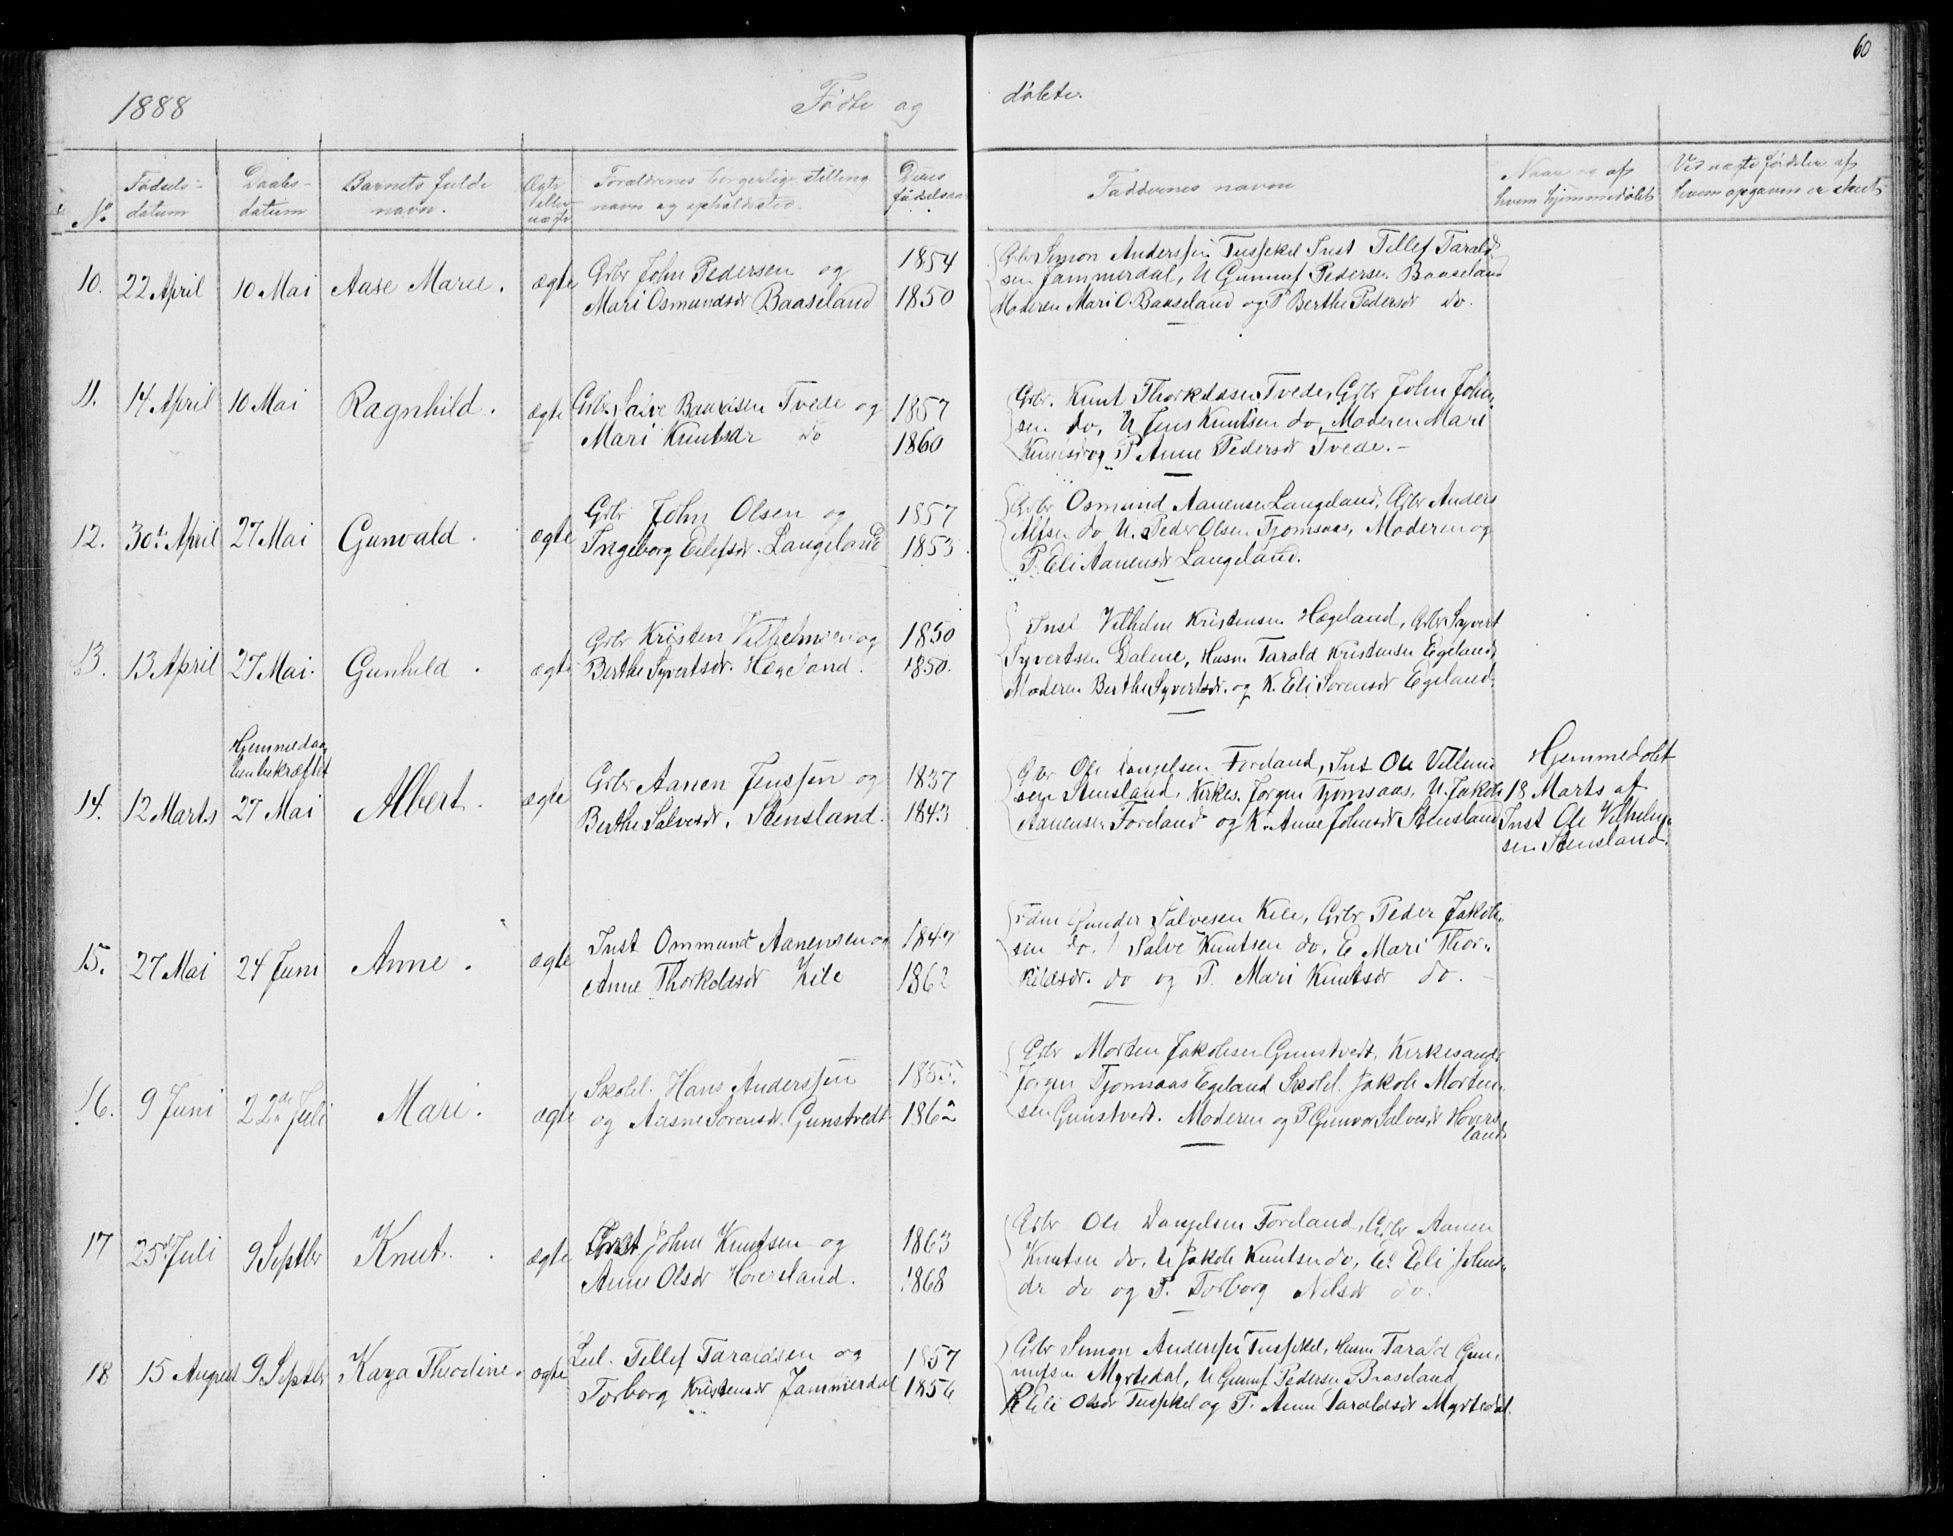 60
1888 Fødte og døbte.
No Fødsels- datum Daabs- datum Barnets fulde navn. Ægte eller uægte Forældrenes borgerlige stilling navn og opholdssted. Deres fødselsaar Faddernes navne Naar og af hvem hjemmedøbt Ved uægte fødsler af hvem opgaven er skeet
10. 22 April 10 Mai Aase Marie. ægte Grbr John Pedersen og 1854
Mari Osmundsdr Baaseland 1850
Grbr Simon Anderssen Tusfeld Inst Tellef Tarald-
sen Jammerdal, U Gunuf Pedersen Baaseland
Moderen Mari O. Baaseland og P Berthe Pedersdr do.
11. 14 April 10 Mai Ragnhild. ægte Grbr. Salve Baardsen Tvede og 1857
Mari Knutsdr do 1860
Grbr. Knut Thorkildsen Tvede, Grbr John John-
sen do, U Jens Knutsen do, Moderen Mari
Knutsdr og P Anne Pedersdr Tvede. –
12. 30te April 27 Mai Gunvald. ægte Grbr John Olsen og 1857
Ingeborg Eilefsdr. Langeland 1853.
Grbr Osmund Aanensen Langeland, Grbr Anders
Alfsen do U. Peder Olsen Tjomsaas, Moderen og
P. Eli Aanensdr Langeland.
13. 13 April 27 Mai. Gunhild. ægte Grbr Kristen Vilhelmsen og 1850
Berthe Syvertsdr. Hægeland. 1850.
Inst Vilhelm Kristensen Hægeland, Grbr Syvert
Syvertsen Dalene, Husm Tarald Kristensen Egeland
Moderen Berthe Syvertsdr. og K. Eli Sørensdr Egeland.
Hjemmedaa-
ben bekræftet
14. 12 Marts 27 Mai Albert. ægte Grbr Aanen Jenssen og 1837
Berthe Salvesdr. Stensland. 1843
Grbr Ole Danjelsen Foreland, Inst Ole Villum
sen Stensland, Kirkes. Jørgen Tjomsaas, U. Jakob
Aanensen Foreland og K. Anne Johnsdr Stensland
Hjemmedøbt
18 Marts af
Inst Ole Vilhelm-
sen Stensland.
15. 27 Mai 24 Juni Anne. ægte Inst Ommund Aanensen og
Anne Thorkildsdr Kile 1862
Gunder Salvesen Kile, Grbr Peder Jakob-
sen do. Salve Knutsen do, E Mari Thor-
kildsdr. do og P. Mari Knutsdr do. –
16. 9 Juni 22de Juli Mari. ægte Skolel. Hans Anderssen 1855.
og Aasne Sørensdr. Gunstvedt 1862
Grbr Morten Jakobsen Gunstvedt, Kirkesanger
Jørgen Tjomsaas Egeland Skolel. Jakob Morten-
sen Gunstvedt. Moderen og P Gunvor Salvesdr Hovers-
land.
17 25de Juli 9 Septbr Knut. ægte Inst John Knutsen og 1863
Anne Olsdr Hoversland. 1868
Grbr Ole Danjelsen Foreland, Grbr Aanen
Knutsen do, U Jakob Knutsen do, E. Eli Johns-
dr do og P. Torborg Nilsdr do.
18 15 August 9 Septbr Kaya Theodine. ægte Leil. Tellef Taraldsen og 1857
Torborg Kristensdr Jammerdal 1856
Grbr Simon Anderssen Tusfeld, Husm Tarald Gun-
nufsen Myrtedal, U Gunuf Pedersen Braseland
K Eli Olsdr Tusfeld og P. Anne Taraldsdr Myrtedal.